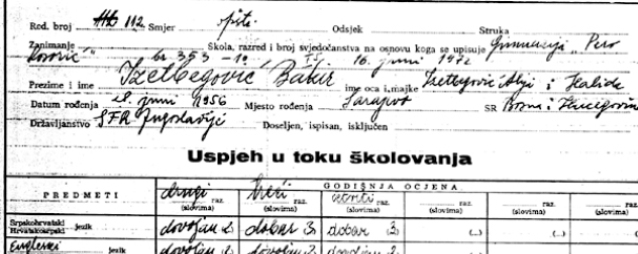 Red. broj 112 Smjer opšti. Odsjek Struka
Zanimanje Škola, razred i broj svjedočanstva na osnovu koga se upisuje Gimnazija „Pero
Kosorić" br. 353 - 16. juni 1972
Prezime i ime Izetbegović Bakir ime oca i majke Izetbegović Alija i Halida
Datum rođenja 28. juni 1956 Mjesto rođenja Sarajevo SR Bosna i Hercegovina
Državljanstvo SFR Jugoslavije Doseljen, ispisan, isključen
Uspjeh u toku školovanja
PREDMETI GODIŠNJA OCJENA
drugi raz. treći raz. četvrti raz. raz. raz.
(slovima) (slovima) (slovima) (slovima) (slovima)
Srpskohrvatski
Hrvatskosrpski jezik dovoljan 2 dobar 3 dobar 3 (...) (...) (
Engleski jezik dovoljan 2 dovoljan 2 dovoljan 2